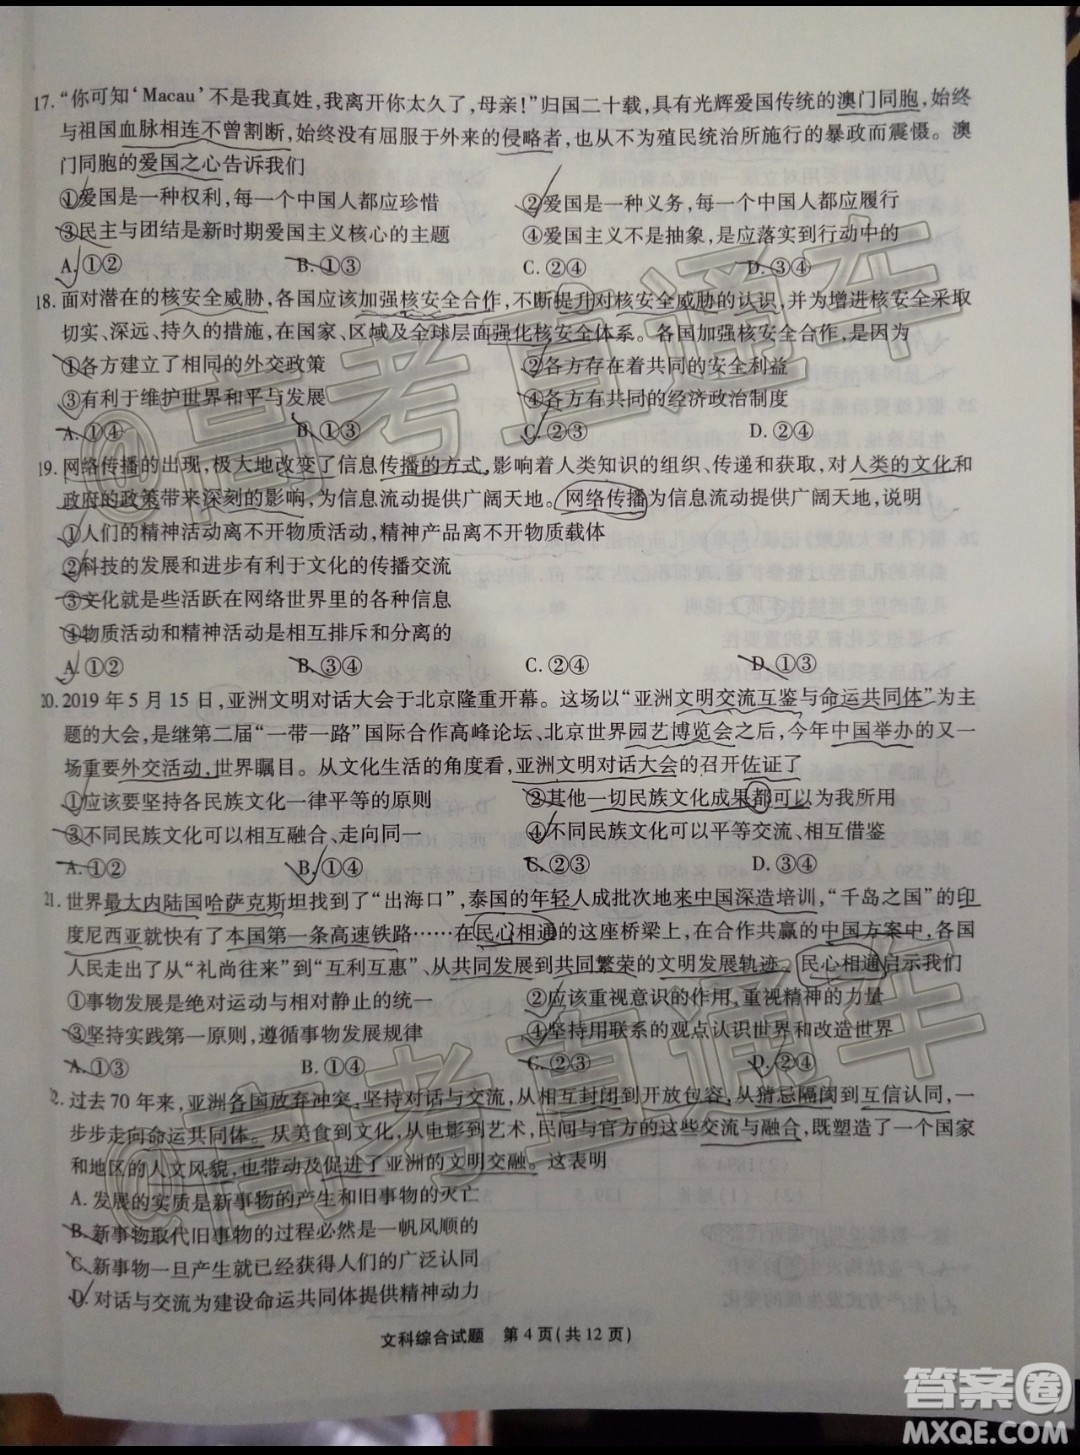 17. “你可知‘Macau’不是我真姓，我离开你太久了，母亲！”归国二十载，具有光辉爱国传统的澳门同胞，始终
与祖国血脉相连不曾割断，始终没有屈服于外来的侵略者，也从不为殖民统治所施行的暴政而震慑。澳
门同胞的爱国之心告诉我们
①爱国是一种权利，每一个中国人都应珍惜 ②爱国是一种义务，每一个中国人都应履行
③民主与团结是新时期爱国主义核心的主题 ④爱国主义不是抽象，是应落实到行动中的
A. ①② B. ①③ C. ②④ D. ③④
18. 面对潜在的核安全威胁，各国应该加强核安全合作，不断提升对核安全威胁的认识，并为增进核安全采取
切实、深远、持久的措施，在国家、区域及全球层面强化核安全体系。各国加强核安全合作，是因为
①各方建立了相同的外交政策 ②各方存在着共同的安全利益
③有利于维护世界和平与发展 ④各方有共同的经济政治制度
A. ①④ B. ①③ C. ②③ D. ②④
19. 网络传播的出现，极大地改变了信息传播的方式，影响着人类知识的组织、传递和获取，对人类的文化和
政府的政策带来深刻的影响，为信息流动提供广阔天地。网络传播为信息流动提供广阔天地，说明
①人们的精神活动离不开物质活动，精神产品离不开物质载体
②科技的发展和进步有利于文化的传播交流
③文化就是些活跃在网络世界里的各种信息
④物质活动和精神活动是相互排斥和分离的
A. ①② B. ③④ C. ②④ D. ①③
20. 2019年5月15日，亚洲文明对话大会于北京隆重开幕。这场以“亚洲文明交流互鉴与命运共同体”为主
题的大会，是继第二届“一带一路”国际合作高峰论坛、北京世界园艺博览会之后，今年中国举办的又一
场重要外交活动，世界瞩目。从文化生活的角度看，亚洲文明对话大会的召开佐证了
①应该要坚持各民族文化一律平等的原则 ②其他一切民族文化成果都可以为我所用
③不同民族文化可以相互融合、走向同一 ④不同民族文化可以平等交流、相互借鉴
A. ①② B. ①④ C. ②③ D. ③④
21. 世界最大内陆国哈萨克斯坦找到了“出海口”，泰国的年轻人成批次地来中国深造培训，“千岛之国”的印
度尼西亚就快有了本国第一条高速铁路……在民心相通的这座桥梁上，在合作共赢的中国方案中，各国
人民走出了从“礼尚往来”到“互利互惠”、从共同发展到共同繁荣的文明发展轨迹。民心相通启示我们
①事物发展是绝对运动与相对静止的统一 ②应该重视意识的作用，重视精神的力量
③坚持实践第一原则，遵循事物发展规律 ④坚持用联系的观点认识世界和改造世界
A. ①③ B. ①④ C. ②③ D. ②④
2. 过去70年来，亚洲各国放弃冲突，坚持对话与交流，从相互封闭到开放包容，从猜忌隔阂到互信认同，一
步步走向命运共同体。从美食到文化，从电影到艺术，民间与官方的这些交流与融合，既塑造了一个国家
和地区的人文风貌，也带动及促进了亚洲的文明交融。这表明
A. 发展的实质是新事物的产生和旧事物的灭亡
B. 新事物取代旧事物的过程必然是一帆风顺的
C. 新事物一旦产生就已经获得人们的广泛认同
D. 对话与交流为建设命运共同体提供精神动力
文科综合试题 第4页（共12页）
@高考直通车
@高考直通车
答案圈
MXQE.COM